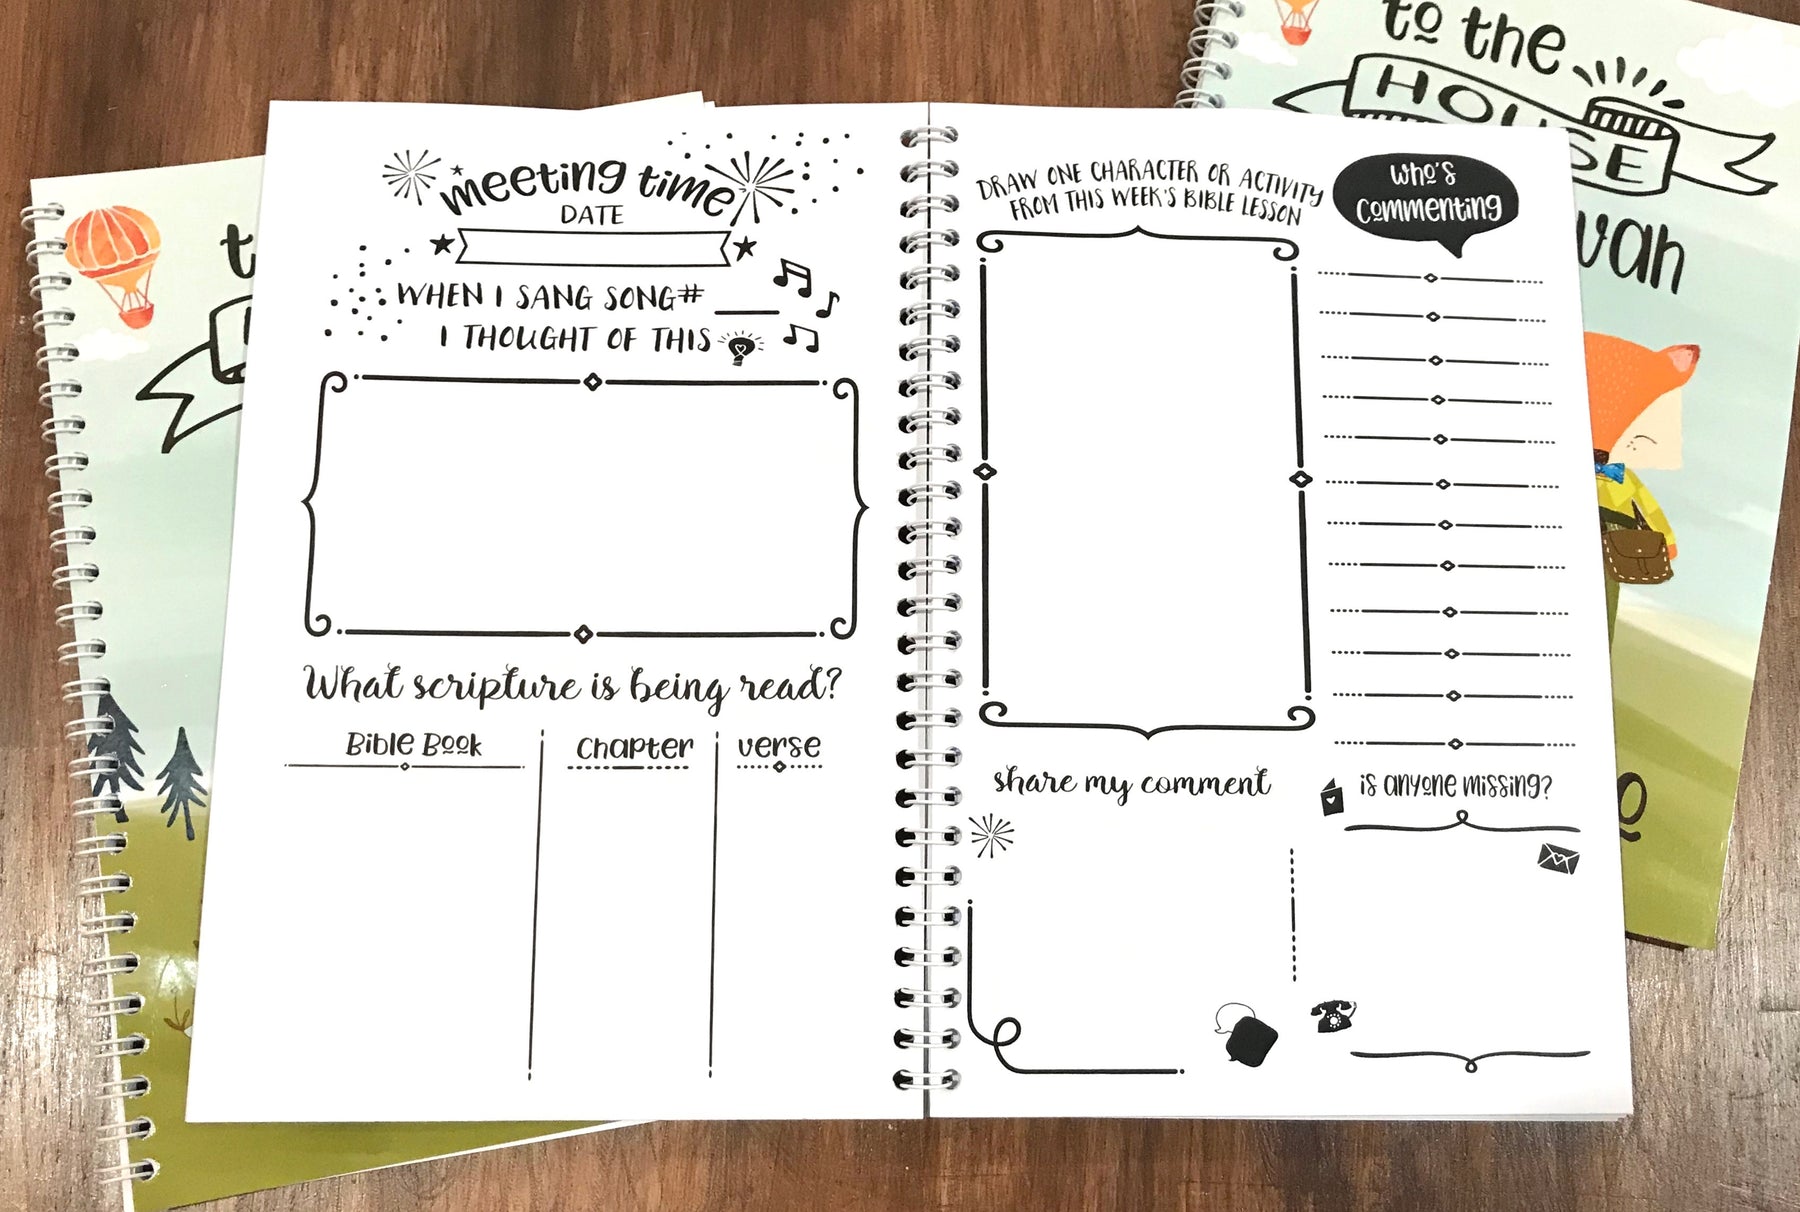 meeting time
DATE
WHEN I SANG SONG# ___
I THOUGHT OF THIS
What scripture is being read?
Bible Book
Chapter
verse
DRAW ONE CHARACTER OR ACTIVITY
FROM THIS WEEK'S BIBLE LESSON
WHO'S
COMMENTING
share my comment
is anyone missing?
to the
HOUSE